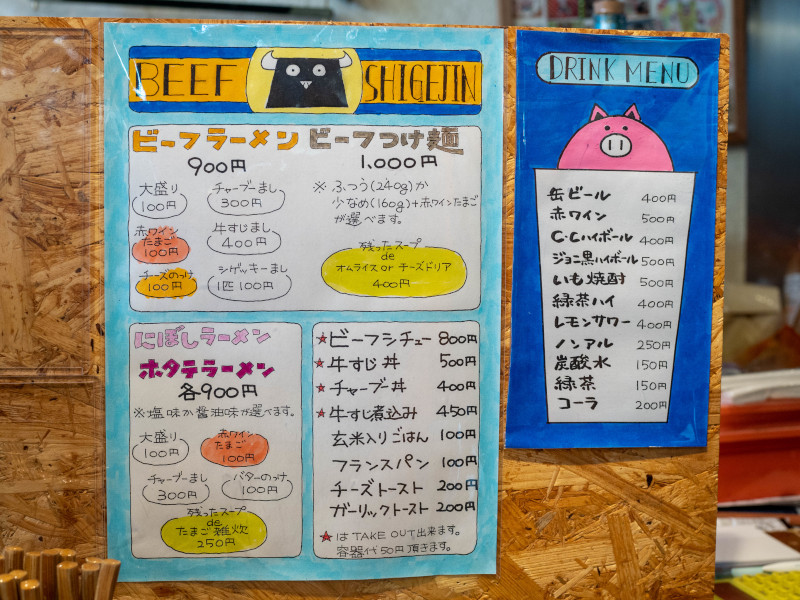 BEEF SHIGEJIN
ビーフラーメン
900円
ビーフつけ麺
1,000円
大盛り
100円
チャーブーまし
300円
赤ワイン
たまご
100円
牛すじまし
400円
チーズのっけ
100円
シゲッキーまし
1匹 100円
※ふつう(240g)か
少なめ(160g)+赤ワインたまご
が選べます。
残ったスープ
de
オムライス or チーズドリア
400円
にぼしラーメン
ホタテラーメン
各900円
※塩味か醤油味が選べます。
大盛り
100円
赤ワイン
たまご
100円
チャーブーまし
300円
バターのっけ
100円
残ったスープ
de
たまご雑炊
250円
★ビーフシチュー 800円
★牛すじ丼 500円
★チャーブー丼 400円
★牛すじ煮込み 450円
玄米入りごはん 100円
フランスパン 100円
チーズトースト 200円
ガーリックトースト 200円
★はTAKE OUT出来ます。
容器代50円頂きます。
DRINK MENU
缶ビール 400円
赤ワイン 500円
C.Cハイボール 400円
ジョニ黒ハイボール 500円
いも焼酎 500円
緑茶ハイ 400円
レモンサワー 400円
ノンアル 250円
炭酸水 150円
緑茶 150円
コーラ 200円